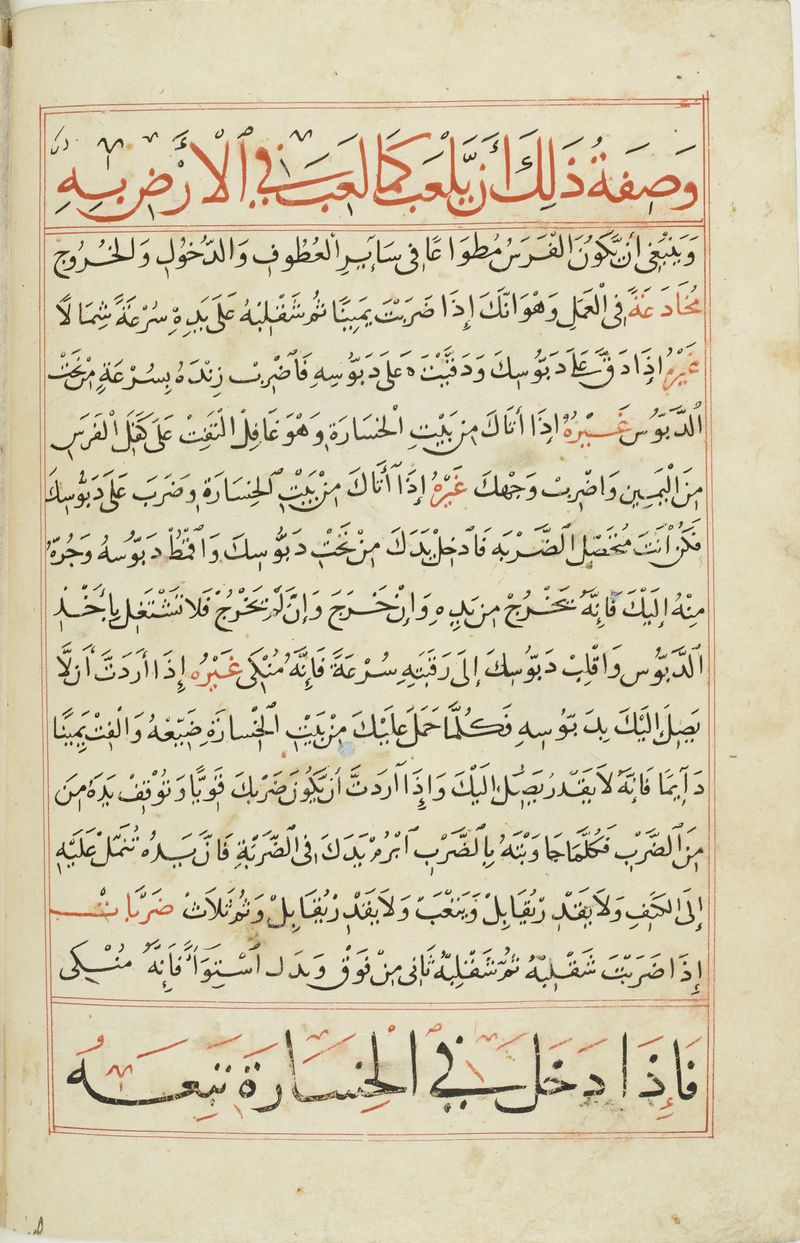 وَصِفَةُ ذَلِكَ أَنْ يَلْعَبَ كَمَا لَعِبَ فِي الْأَرْضِ بِهِ
وَيَنْبَغِي أَنْ يَكُونَ الْفَرَسُ مُطوَاعًا فِي سَايِرِ الْعُطُوفِ وَالدُّخُولِ وَالخُرُوجِ
مُخَادَعَةً فِي الْعَمَلِ وَهُوَ انَّكَ إِذَا ضَرَبْتَ يَمِينًا ثُمَّ شَقْلَبْهُ عَلَى يَدِهِ سُرْعَةً شِمَالًا
غَيْرُهُ إِذَا دَقَّ عَلَى دَبُّوسِكَ وَدَقَّيْتَهُ عَلَى دَبُّوسِهِ فَاضْرِبْ زِنْدَهُ بِسُرْعَةٍ مِنْ تَحْتِ
الدَّبُّوسِ غَيْرُهُ إِذَا أَتَاكَ مِن بَيْتِ الْخسَارَةِ وَهْوَ غَافِلْ الْتَفِتْ عَلَى كَفَلِ الْفَرَسِ
مِنَ الْيَمِينِ وَاضْرِبْ وَجْهَكَ غَيْرُهُ إِذَا أَتَاكَ مِنْ بَيْتِ الخِسَارَةِ وَضَرَبَ عَلَى دَبُّوسِكَ
فَكُنْ أَنْتَ مُحَصِّلَ الضَّرْبَهِ فَادخِلْ يَدَكَ مِنْ تَحْتِ دَبُّوسِكَ وَاقمُطْ دَبُّوسهُ وَجُرَّهُ
مِنْهُ إِلَيْكَ فَإِنَّهُ يَخْرُجْ مِن يَدِهِ وَإِنْ خَرَجَ وَإِن لَمْ يَخْرُجْ فَلَا تَشْتَغِل بِأَخْذِ
الدَّبُّوس وَاقْلِبْ دَبُّوسَكَ إِلَى رَقَبَتِهِ سُرْعَةً فَإِنَّهُ مُنْكِى غَيْرُه إِذَا أَرَدتَّ أَن لَّا
يَصِلَ إِلَيْكَ بِدَبُّوسِهِ فَكُلَّمَا حَمَلَ عَلَيْكَ مِنْ بَيْتِ الْخْسارَةِ ضَيِّعْهُ وَالْفِتْ يَمِينًا
دَآيِمًا فَإِنَّهُ لَا يَقْدِرُ يَصِل الَيْكَ وَإِذَا أَرَدتَّ أَن يَكُونَ ضَرْبكَ قَوِيًّا وَتُوْقِفْ يَدَهُ مِنَ
مِنَ الضَّرْبِ فَكُلَّمَا جَاوَبْتَهُ بِالضَّرْبِ ابْرُمْ يَدَكَ فِى الضَّرْبَةِ فَانَّ يَدهُ تُحْمَلْ عَلَيْهِ
إِلَى الكَتِفِ وَلَا يَقْدِرْ يُقَابِلْ وَيَتْعَبَ وَلَا يَقْدِرْ يُقَابِلْ وَثُمَّ ثَلَاثْ ضَرَبَاتْ
إِذَا ضَرَبْتَ شَقْلِبْهُ ثُمَّ شَقْلِبْهُ ثَانِى مِنْ فَوْق اسْتِوَاً فَإِنَّهُ مُنْكِى
فَإِذَا دَخَلَ فِي الْخِسَارَةِ تَتْبَعَهُ